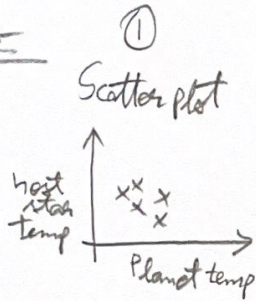 ①
Scatter plot
host
star
temp
Planet temp